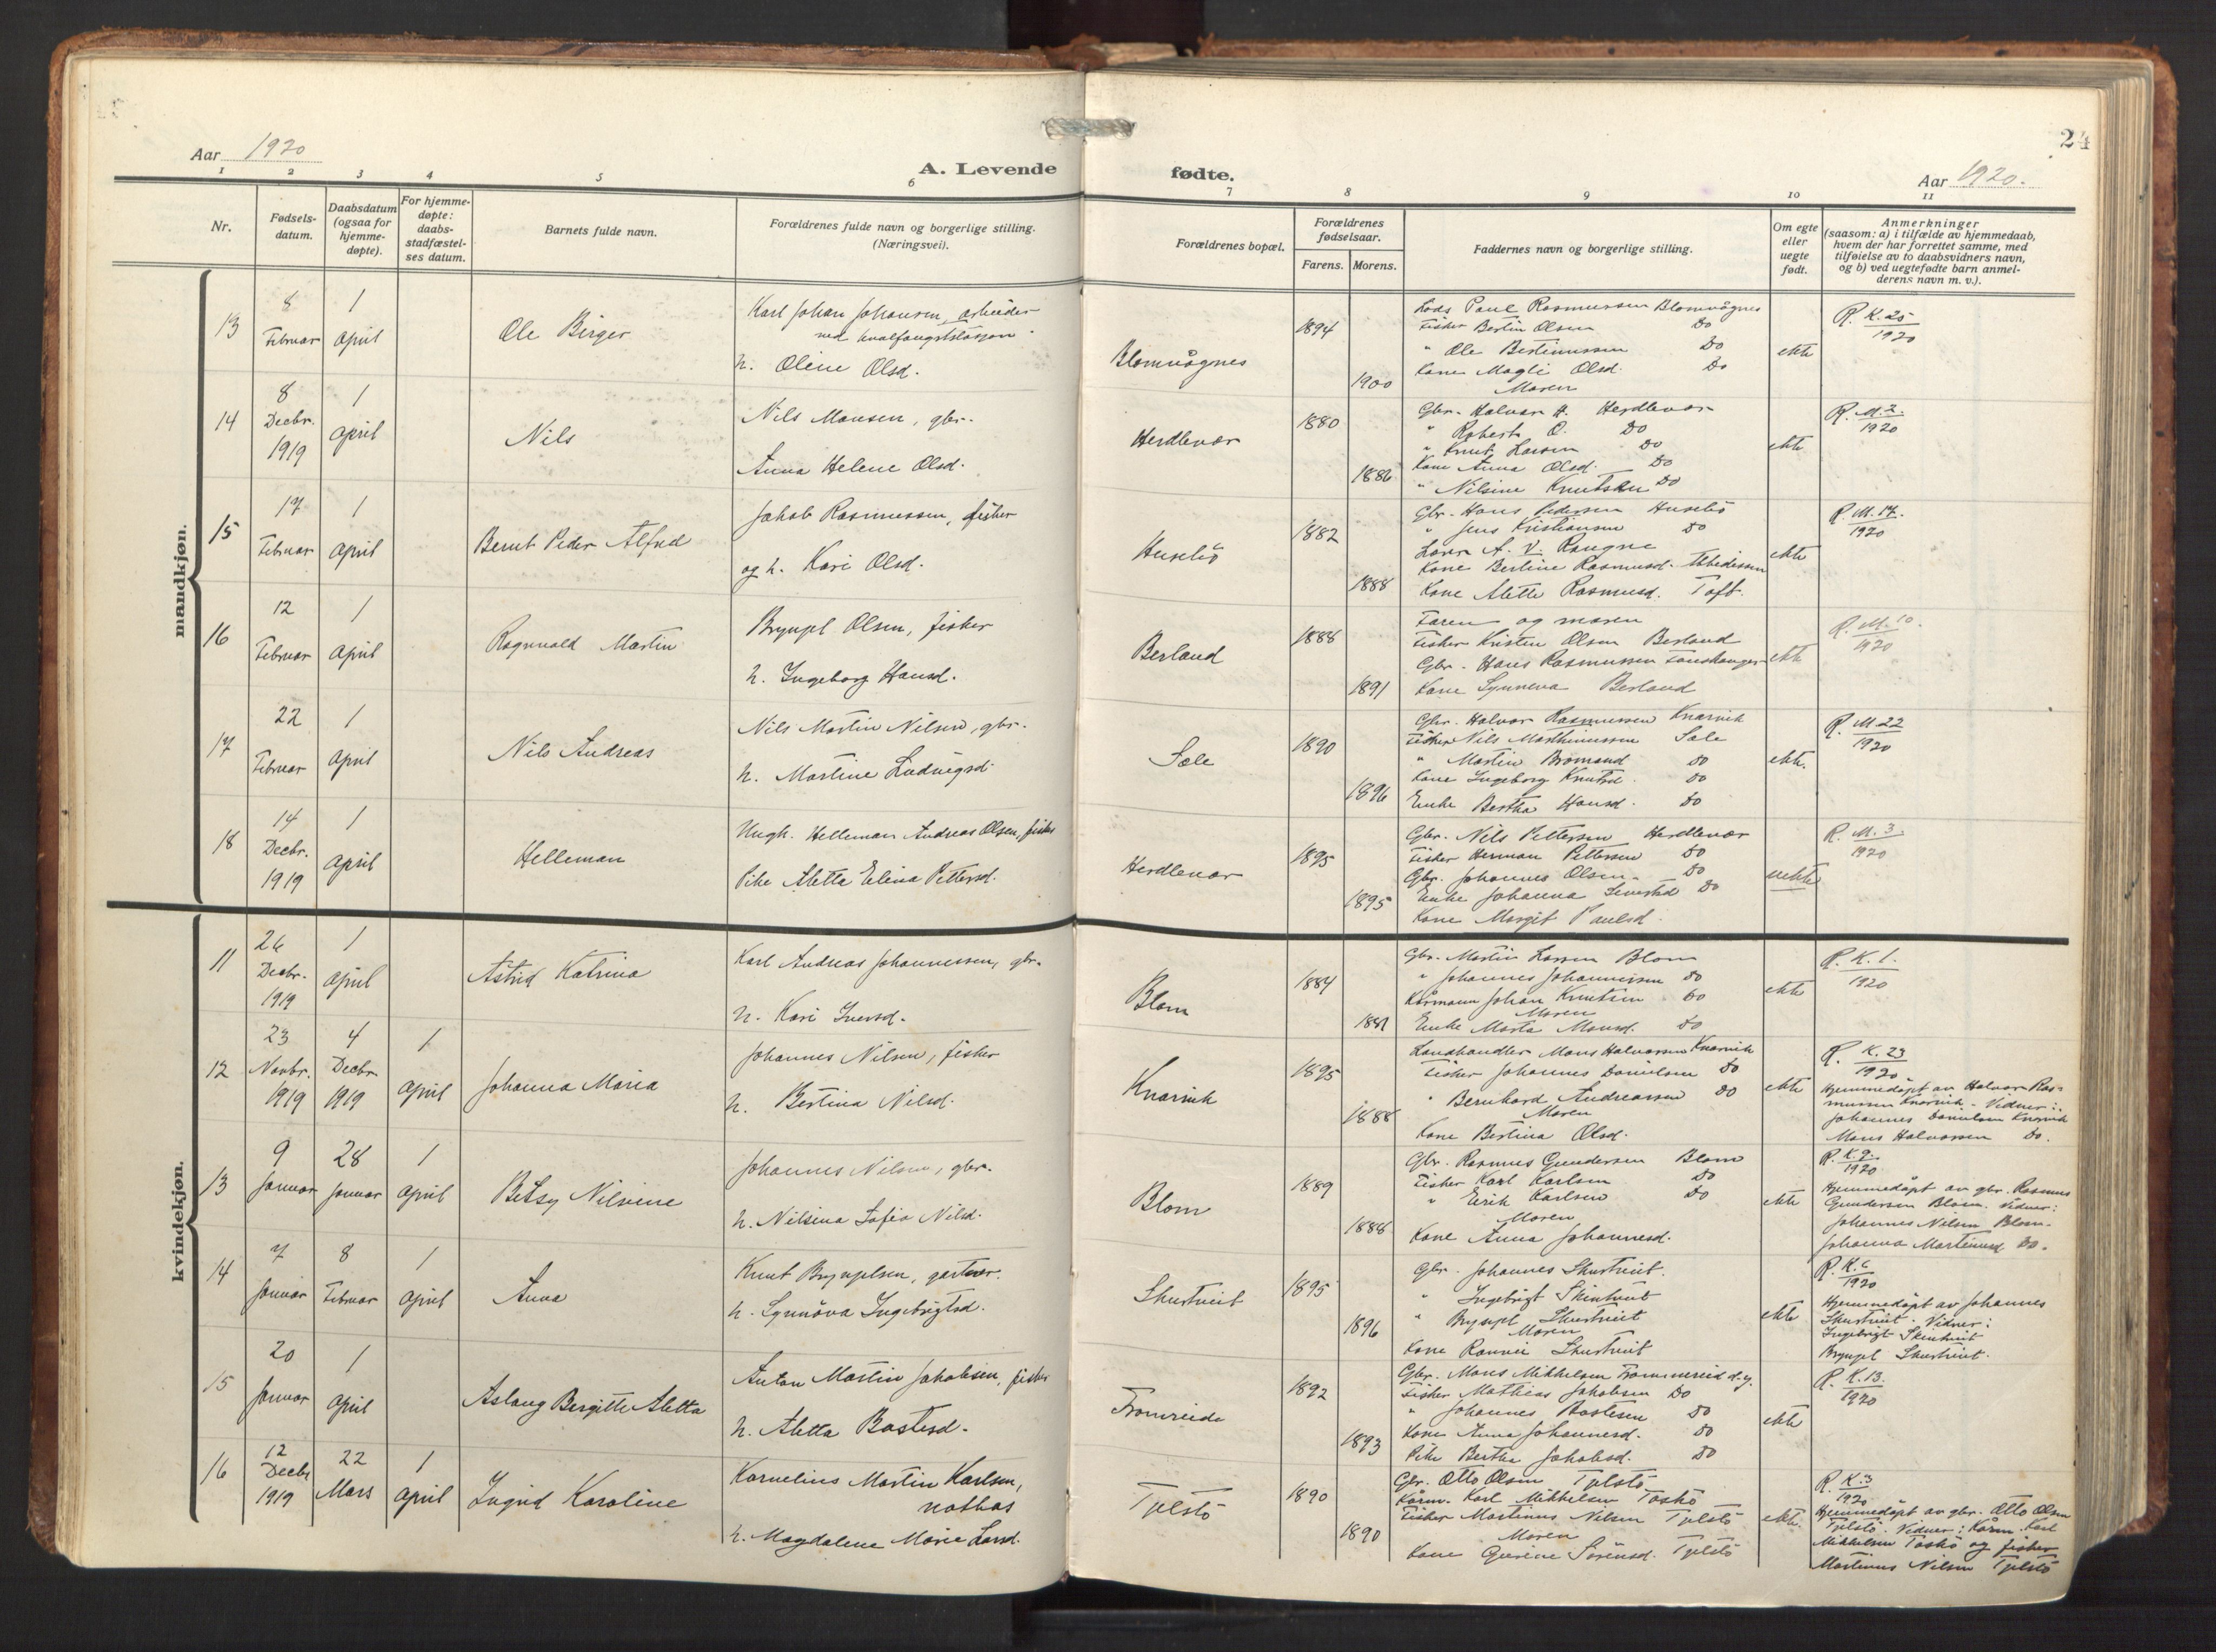 24
Aar 1920
A. Levende
fødte.
Aar 1920.
1 2 3 4 5 6 7 8 9 10 11
Nr.
Fødsels-
datum.
Daabsdatum
(ogsaa for
hjemme-
døpte).
For hjemme-
døpte:
daabs-
stadfæstel-
ses datum.
Barnets fulde navn.
Forældrenes fulde navn og borgerlige stilling.
(Næringsvei).
Forældrenes bopæl.
Forældrenes
fødselsaar.
Farens. Morens.
Faddernes navn og borgerlige stilling.
Om egte
eller
uegte
født.
Anmerkninger
(saasom: a) i tilfælde av hjemmedaab,
hvem der har forrettet samme, med
tilføielse av to daabsvidners navn,
og b) ved uegtefødte barn anmel-
derens navn m. v.).
mandkjøn.
13
8
Februar
1
April
Ole Birger
Karl Johan Johansen, arbeider
ved hvalfangststasjon
h. Oline Olsd.
Blomvågnes
1894
1900
Lods Paul Rasmussen Blomvågnes
Fisker Bertin Olsen Do
" Ole Bertinussen Do
Kone Magli Olsd. Do
Moren
ekte
R. K. 25
1920
14
8
Decbr.
1919
1
April
Nils
Nils Monsen, gbr.
Anna Helene Olsd.
Herdlevær
1880
1886
Gbr. Halvar H. Herdlevær
" Robert O. Do
" Knut Larsen Do
Kone Anna Olsd. Do
" Nilsine Knutsen Do
ekte
R. M. 2.
1920
15
17
Februar
1
April
Bernt Peder Alfred
Jakob Rasmussen, fisker
og h. Kari Olsd.
Husebø
1882
1888
Gbr. Hans Pedersen Husebø
" Jens Kristiansen Do
Lærer A. V. Rangne
Kone Bertine Rasmusd.
Kone Alette Rasmusd. Toft.
ekte
R. M. 17.
1920
16
12
Februar
1
April
Ragnvald Martin
Brynjel Olsen, fisker
h. Ingeborg Hansd.
Berland
1888
1891
Faren og moren
Fisker Kristen Olsen Berland
Gbr. Hans Rasmussen
Kone Synneva Berland
ekte
R. M. 10.
1920
17
22
Februar
1
April
Nils Andreas
Nils Martin Nilsen, gbr.
h. Martine Ludvigsd.
Sæle
1890
1896
Gbr. Halvar Rasmussen Knarvik
Fisker Nils Marthinussen Sæle
" Martin Bromand Do
Kone Ingeborg Knutsd. Do
Enke Bertha Hansd. Do
ekte.
R. M. 22
1920
18
14
Decbr.
1919
1
April
Helleman
Ungk. Helleman Andreas Olsen, fisker
Pike Aletta Elina Pettersd.
Herdlevær
1895
1895
Gbr. Nils Pettersen Herdlevær
Fisker Herman Pettersen Do
Gbr. Johannes Olsen Do
Enke Johanna Do
Kone Margit Paulsd.
uekte
R. M. 3.
1920
kvindekjøn.
11
26
Decbr.
1919
1
April
Astrid Katrina
Karl Andreas Johannessen, gbr.
h. Kari Iversd.
Blom
1884
1881
Gbr. Martin Larsen Blom
" Johannes Johannessen Do
Kårmann Johan Knutsen Do
Moren
Enke Marta Monsd. Do
ekte
R. K. 1.
1920
12
23
Novbr.
1919
4
Decbr.
1919
1
April
Johanna Maria
Johannes Nilsen, fisker
h. Bertina Nilsd.
Knarvik
1895
1888
Landhandler Mons Halvorsen Knarvik
Fisker Johannes Danielsen Do
" Bernhard Andreassen Do
Moren
Kone Bertina Olsd.
ekte
R. K. 23
1920
Hjemmedøpt av Halvar Ras-
mussen Knarvik - Vidner:
Johannes Danielsen Knarvik
Mons Halvorsen Do.
13
9
Januar
28
Januar
1
April
Betsy Nilsine
Johannes Nilsen, gbr.
h. Nilsina Sofia Nilsd.
Blom
1889
1888
Gbr. Rasmus Gundersen Blom
Fisker Karl Karlsen Do
" Erik Karlsen Do
Moren
Kone Anna Johannesd.
ekte
R. K. 9.
1920
Hjemmedøpt av gbr. Rasmus
Gundersen Blom. Vidner:
Johannes Nilsen Blom.
Johanna Martinusd Do.
14
7
Januar
8
Februar
1
April
Anna
Knut Brynjelsen, gartner.
h. Synnøva Ingebrigtsd.
Skurtveit
1895
1896
Gbr. Johannes Skurtveit.
" Ingebrigt Skurtveit
" Brynjel Skurtveit
Moren
Kone Rannei Skurtveit
ekte
R. K. 6
1920
Hjemmedøpt av Johannes
Skurtveit. Vidner:
Ingebrigt Skurtveit
Brynjel Skurtveit.
15
20
Januar
1
April
Aslaug Bergitte Aletta
Anton Martin Jakobsen, fisker
h. Aletta Bastesd.
Fromreide
1892
1893
Gbr. Mons Mikkelsen Frommreid d.y.
Fisker Mathias Jakobsen Do
" Johannes Bastesen Do
Kone Anna Johannesd. Do
Pike Bertha Jakobsd. Do
ekte
R. K. 13.
1920
16
12
Decbr
1919
22
Mars
1
April
Ingrid Karoline
Kornelius Martin Karlsen,
notbas
h. Magdalene Marie Larsd.
Tjelstø
1890
1890
Gbr. Otto Olsen Tjelstø
Kårm. Karl Mikkelsen Toskø
Fisker Martinus Nilsen Tjelstø
Moren
Kone Gurine Sørensd. Tjelstø
ekte.
R. K. 3
1920
Hjemmedøpt av gbr. Otto Olsen
Tjelstø. Vidner: Kårm. Karl
Mikkelsen Toskø og fisker
Martinus Nilsen Tjelstø